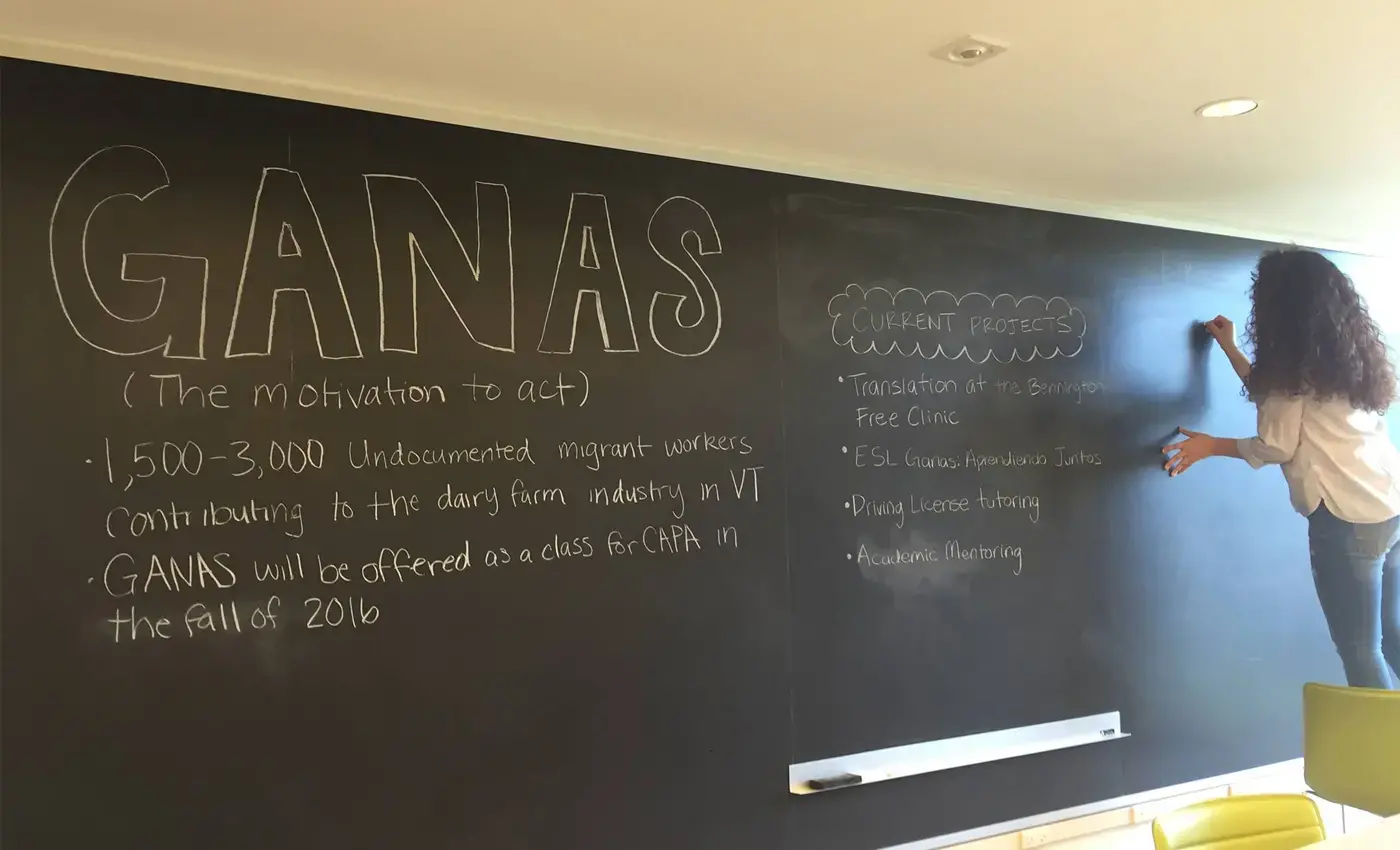 GANAS
(The motivation to act)
· 1,500-3,000 Undocumented migrant workers
contributing to the dairy farm industry in VT
· GANAS will be offered as a class for CAPA in
the fall of 2016
CURRENT PROJECTS
· Translation at the Bennington
Free Clinic
· ESL Ganas: Aprendiendo Juntos
· Driving License tutoring
· Academic Mentoring